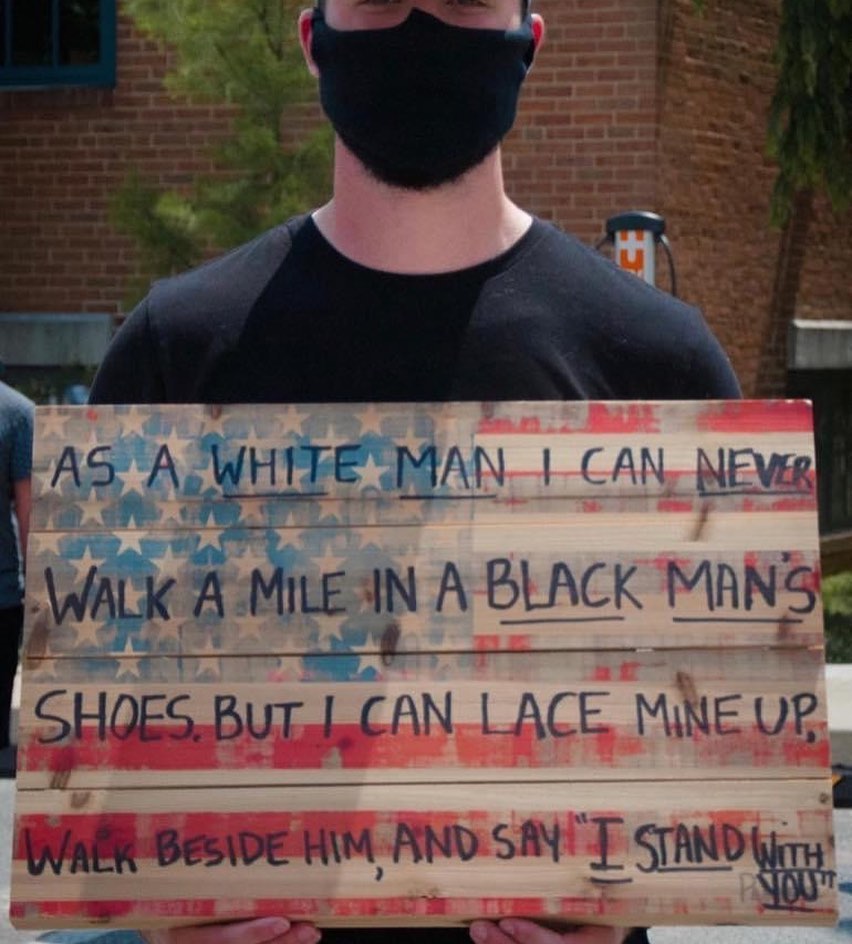 AS A WHITE MAN I CAN NEVER
WALK A MILE IN A BLACK MAN'S
SHOES. BUT I CAN LACE MINE UP,
WALK BESIDE HIM, AND SAY "I STAND WITH
YOU"